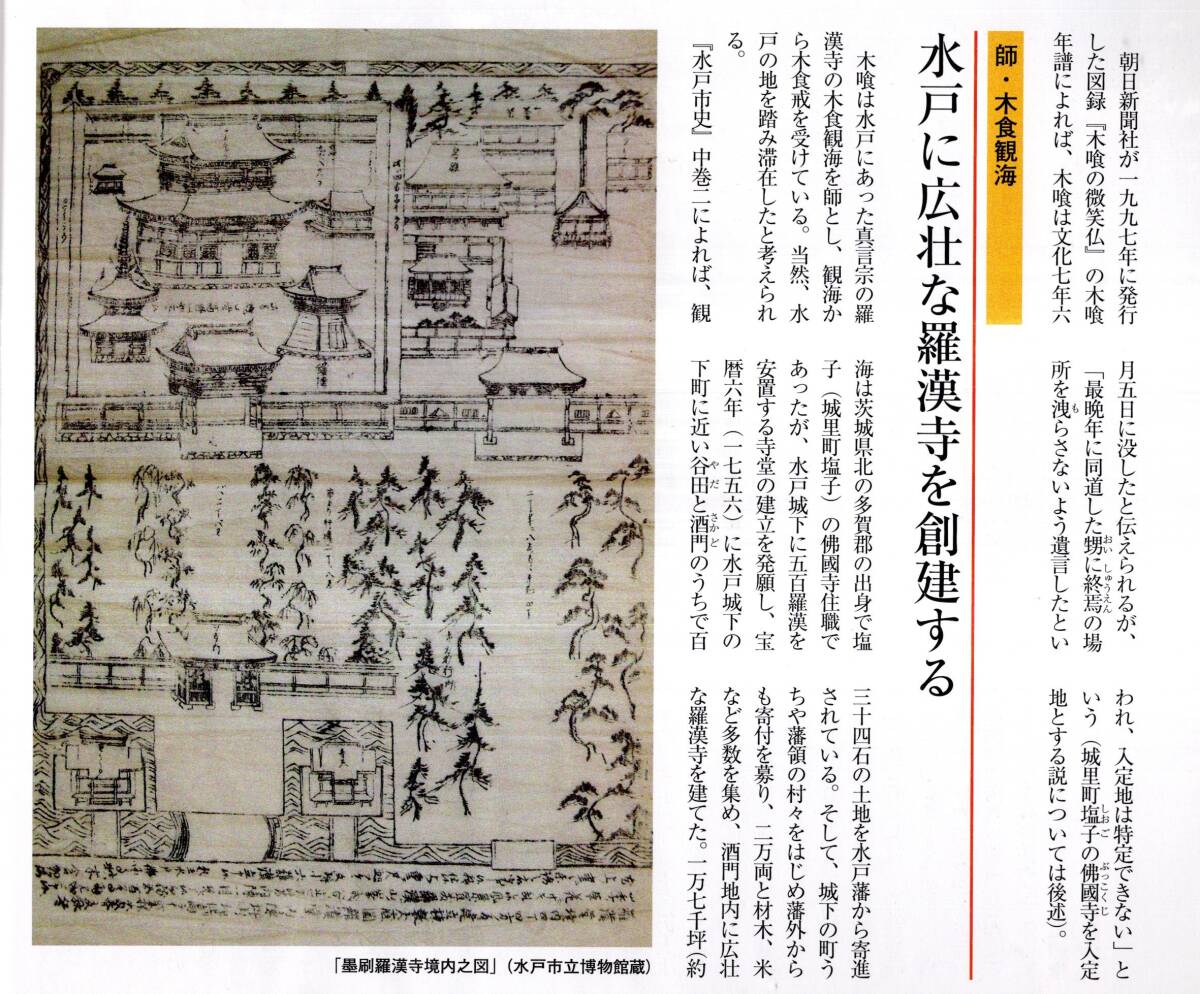 朝日新聞社が一九九七年に発行
した図録『木喰の微笑仏』の木喰
年譜によれば、木喰は文化七年六
月五日に没したと伝えられるが、
「最晩年に同道した甥に終焉の場
おい
しゅうえん
所を洩らさないよう遺言したとい
も
われ、入定地は特定できない」と
いう（城里町塩子の佛國寺を入定
しおご
ぶっこくじ
地とする説については後述）。
師・木食観海
水戸に広壮な羅漢寺を創建する
木喰は水戸にあった真言宗の羅
漢寺の木食観海を師とし、観海か
ら木食戒を受けている。当然、水
戸の地を踏み滞在したと考えられ
る。
『水戸市史』中巻二によれば、観
海は茨城県北の多賀郡の出身で塩
子（城里町塩子）の佛國寺住職で
あったが、水戸城下に五百羅漢を
安置する寺堂の建立を発願し、宝
暦六年（一七五六）に水戸城下の
下町に近い谷田と酒門のうちで百
やだ
さかど
三十四石の土地を水戸藩から寄進
されている。そして、城下の町う
ちや藩領の村々をはじめ藩外から
も寄付を募り、二万両と材木、米
など多数を集め、酒門地内に広壮
な羅漢寺を建てた。一万七千坪（約
「墨刷羅漢寺境内之図」（水戸市立博物館蔵）